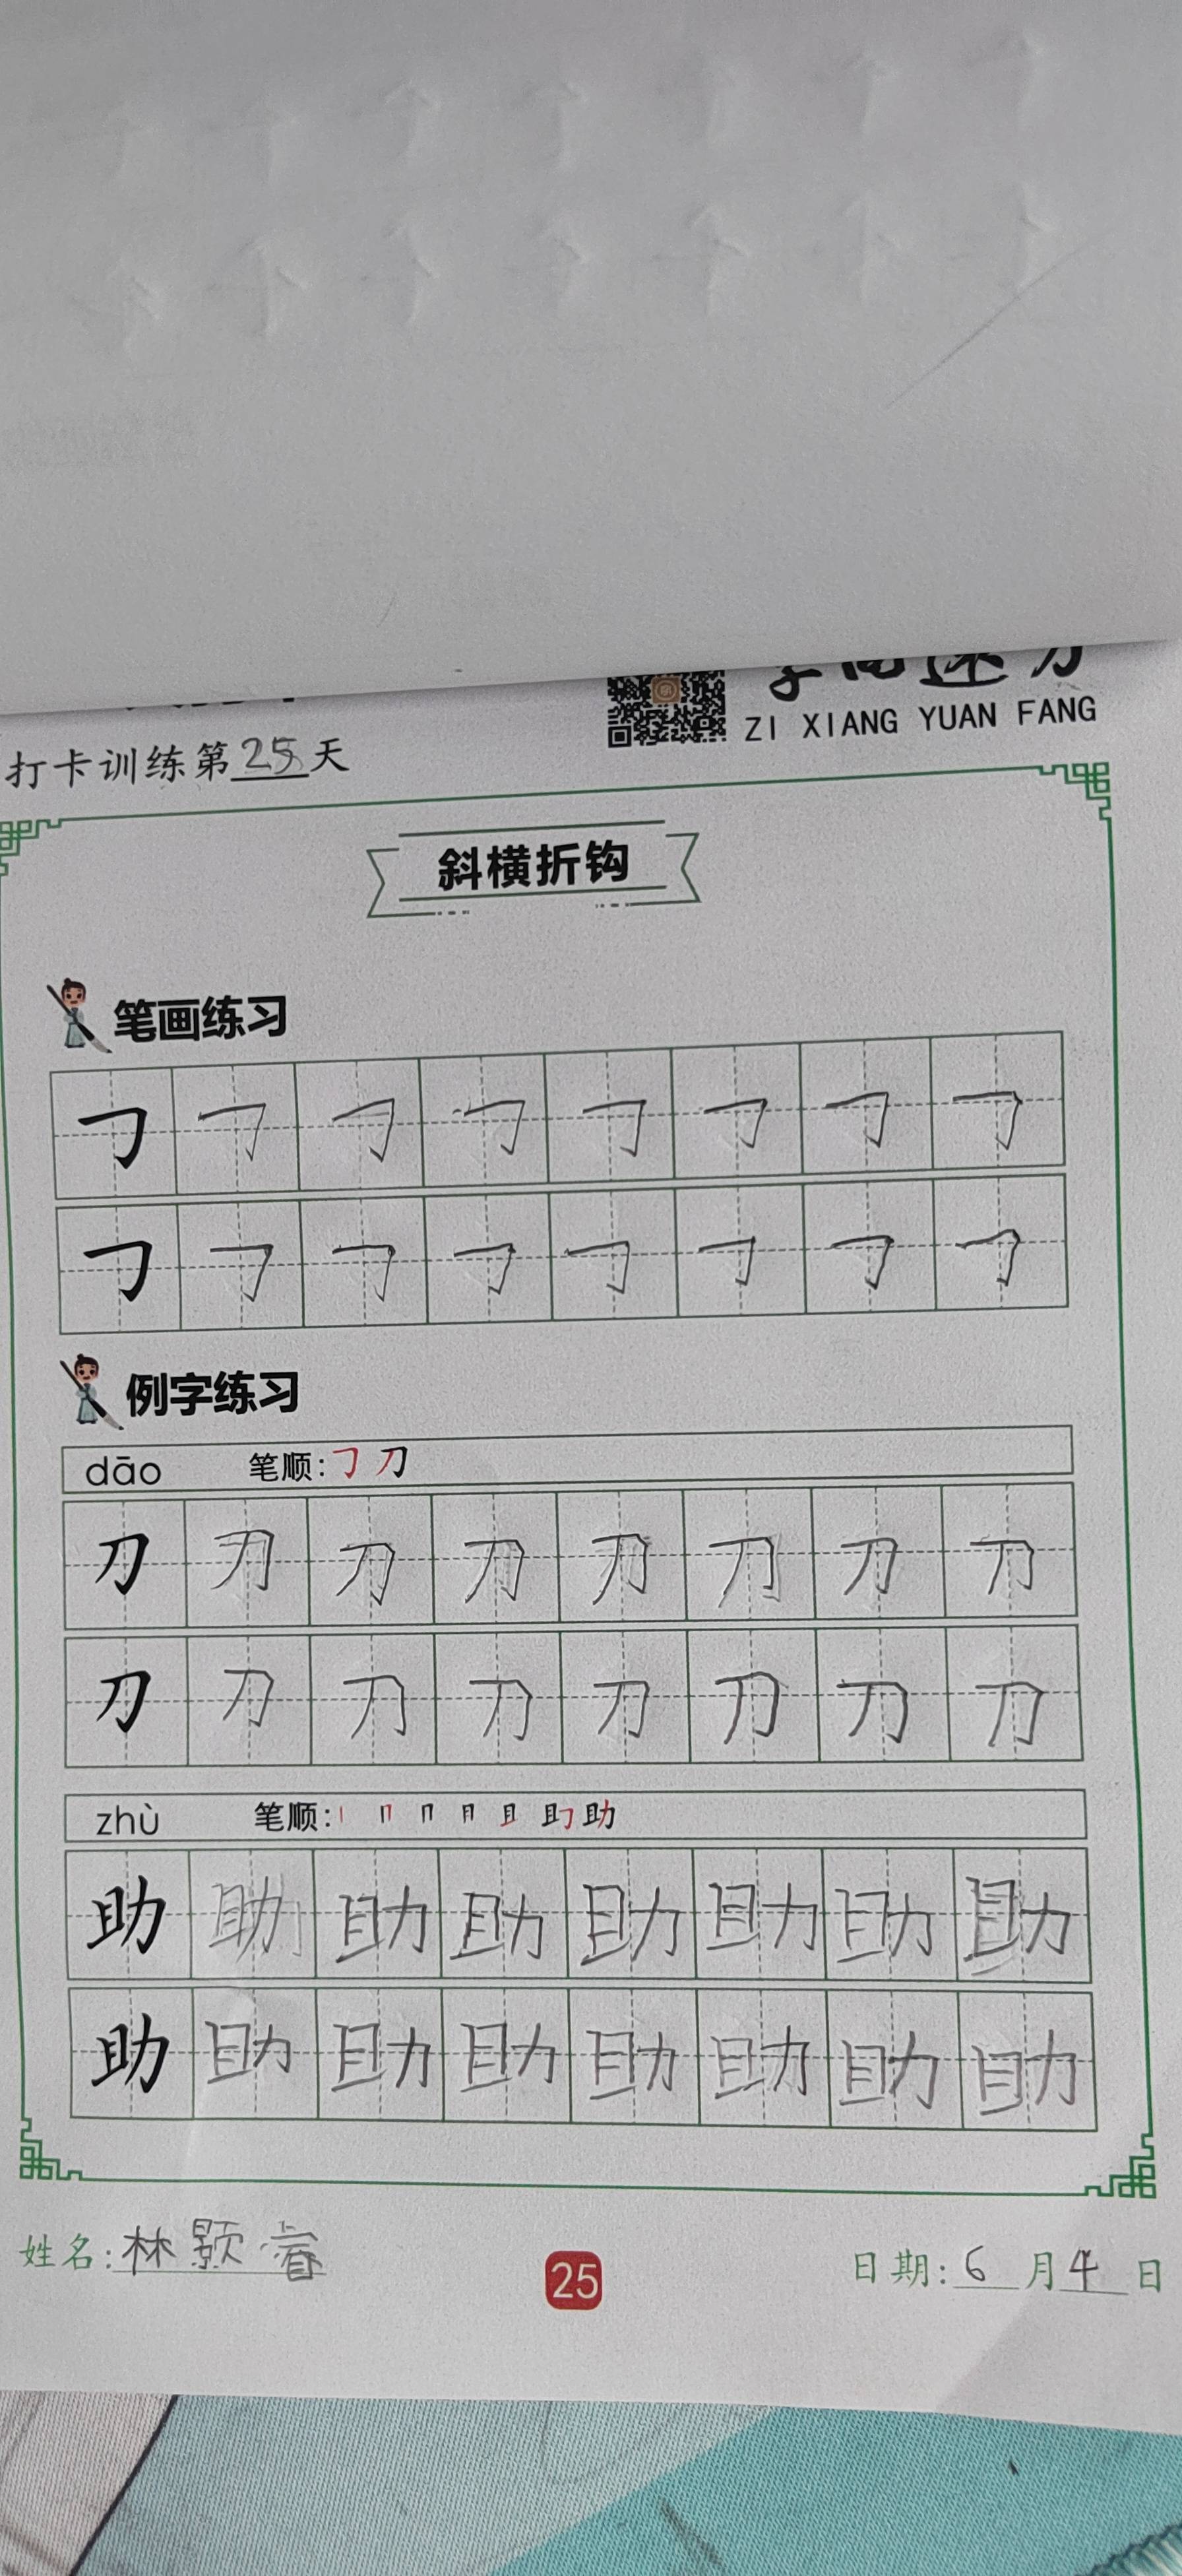 ZI XIANG YUAN FANG
打卡训练第25天
斜横折钩
笔画练习
例字练习
dāo 笔顺:
刀 刀 刀 刀 刀 刀 刀 刀
刀 刀 刀 刀 刀 刀 刀 刀
zhù 笔顺:
助 助 助 助 助 助 助 助
助 助 助 助 助 助 助 助
姓名:林颢睿
25
日期:6月4日